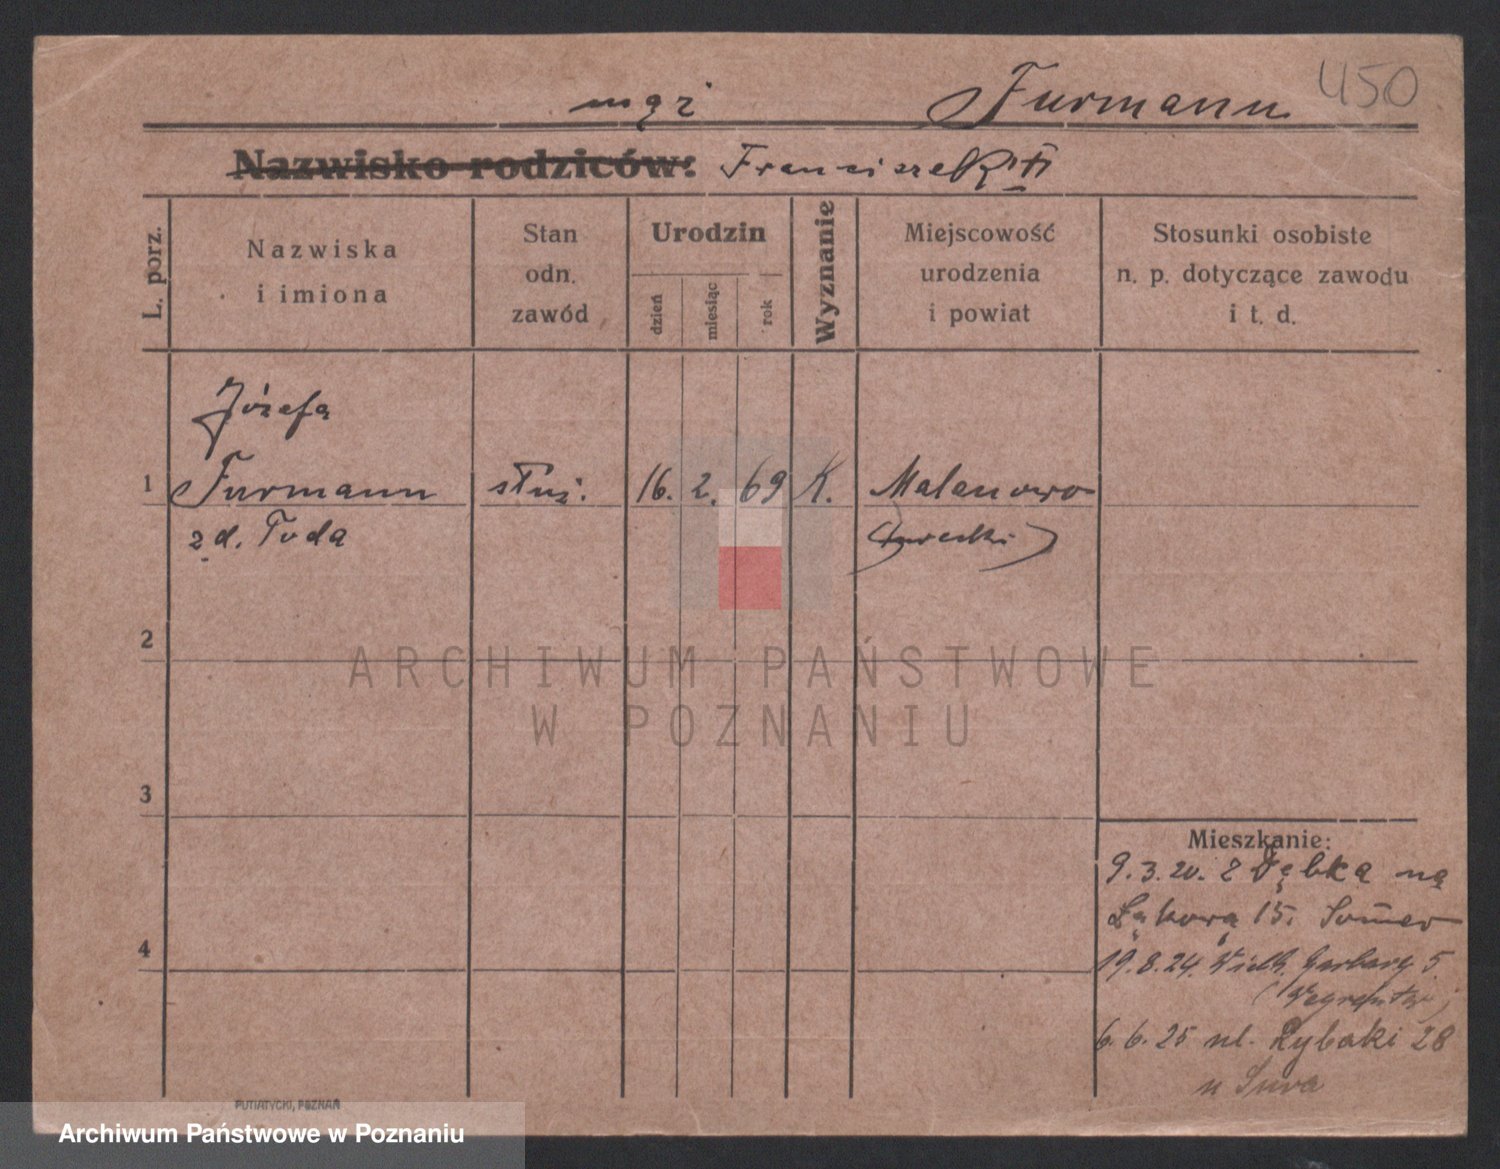 450
mąż Furmann
Nazwisko rodziców: Franciszek
L. porz.
Nazwiska
i imiona
Stan
odn.
zawód
Urodzin
dzień
miesiąc
rok
Wyznanie
Miejscowość
urodzenia
i powiat
Stosunki osobiste
n. p. dotyczące zawodu
i t. d.
Józefa
1 Furmann służ. 16. 2. 69 K. Malanowo
zd. Tuda
2
3
4
Mieszkanie:
9.3.20. z Dębka na
Łąkową 15.
19.8.24. Wielk. Garbary 5.
6.6.25 ul. Rybaki 28
u
PUTIATYCKI, POZNAŃ
ARCHIWUM PAŃSTWOWE
W POZNANIU
Archiwum Państwowe w Poznaniu